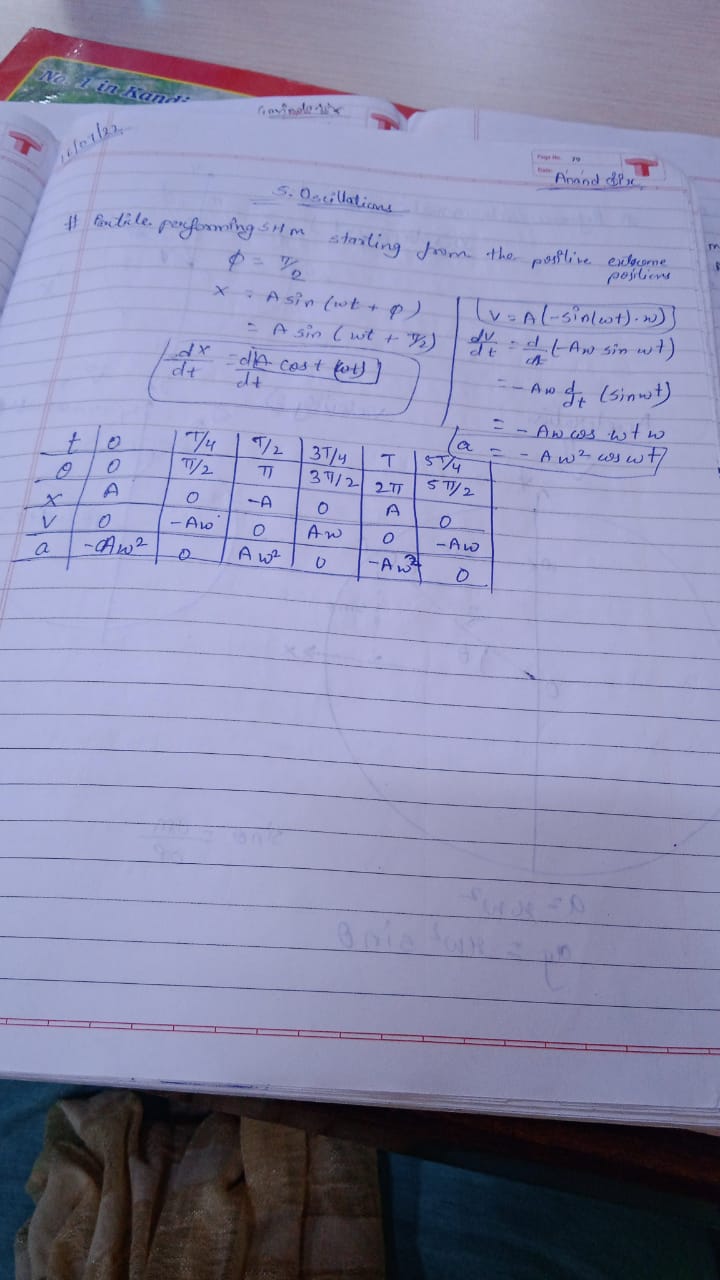 No. 1 in Kandi
T
16/07/22
Page No. 79
Date:
T
Anand Sir
5. Oscillations
# Partile performing SHM starting from the positive extreme
positions
ϕ = π/2
x = A sin (wt + ϕ)
= A sin (wt + π/2)
dx/dt = dA cos t (wt)/dt
V = A(-sin(wt).w)
dv/dt = d/dt (-Aw sin wt)
= -Aw d/dt (sin wt)
= -Aw cos wt w
a = -Aw² cos wt
t 0 T/4 T/2 3T/4 T 5T/4
θ 0 π/2 π 3π/2 2π 5π/2
x A 0 -A 0 A 0
V 0 -Aw 0 Aw 0 -Aw
a -Aw² 0 Aw² 0 -Aw² 0